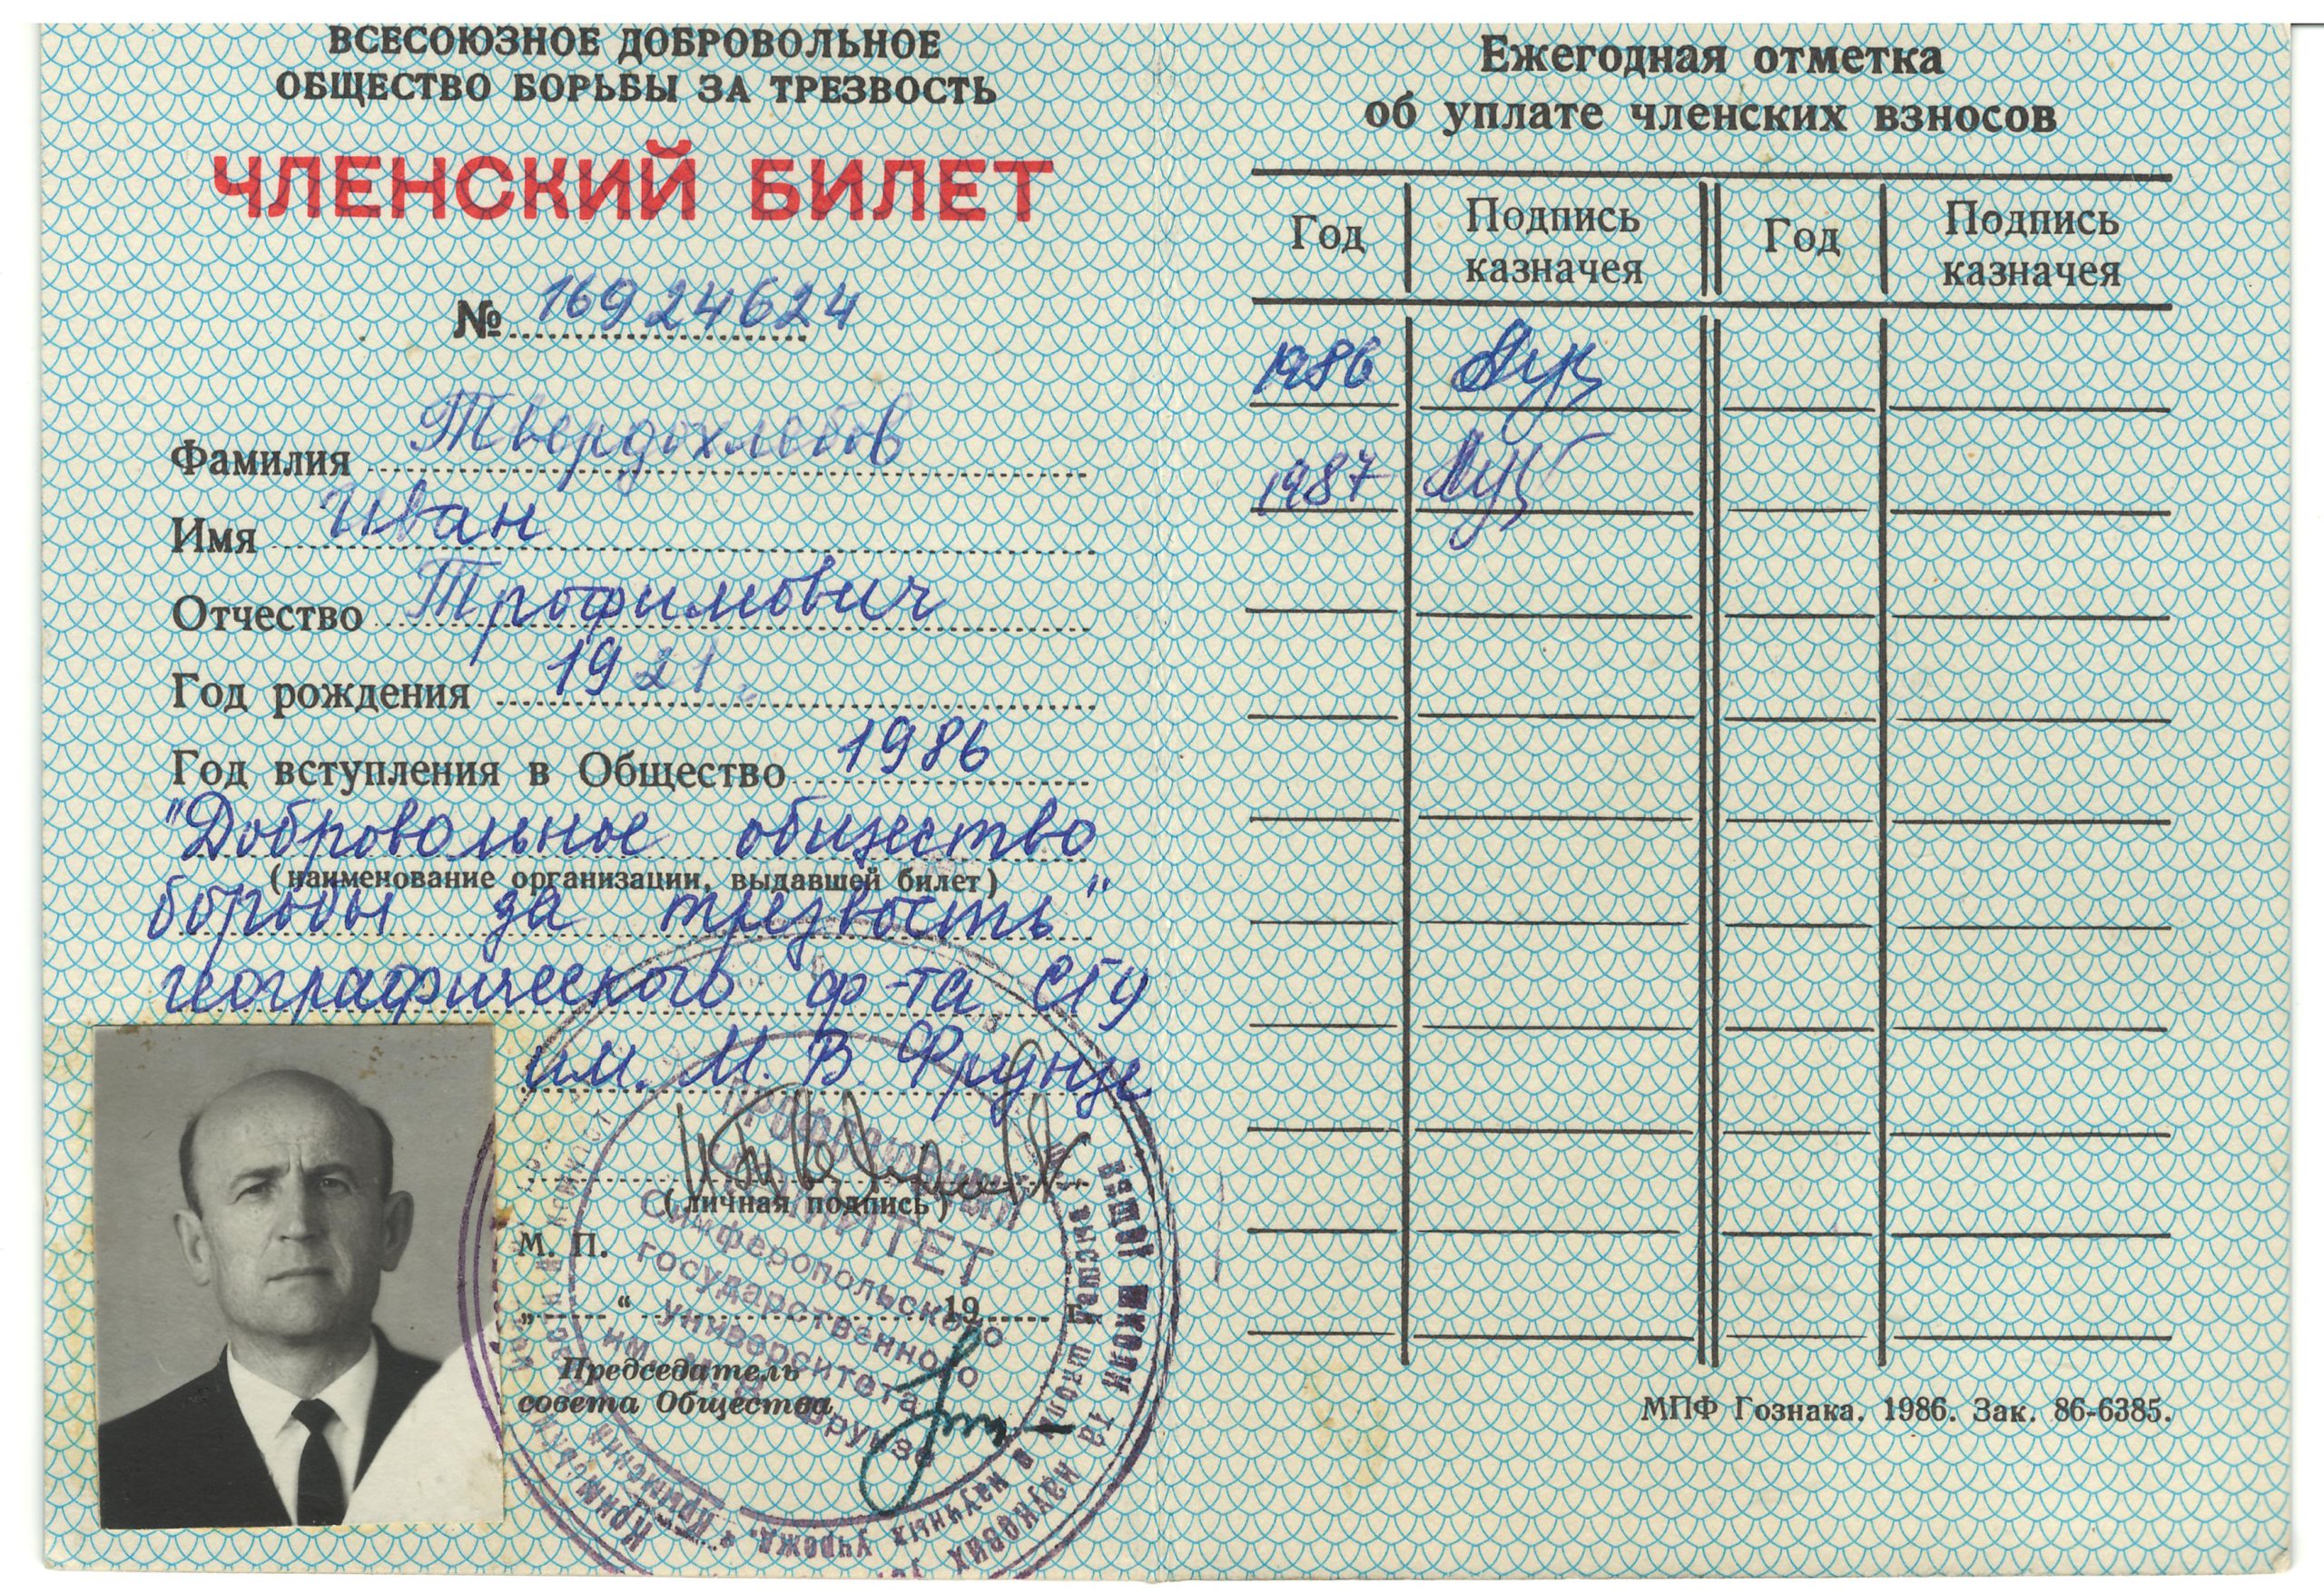 ВСЕСОЮЗНОЕ ДОБРОВОЛЬНОЕ
ОБЩЕСТВО БОРЬБЫ ЗА ТРЕЗВОСТЬ
ЧЛЕНСКИЙ БИЛЕТ
№ 16924624
Фамилия Твердохлебов
Имя Иван
Отчество Трофимович
Год рождения 1921 г.
Год вступления в Общество 1986
"Добровольное общество
(наименование организации, выдавшей билет)
борьбы за трезвость"
географического ф-та СГУ
им. М. В. Фрунзе
(личная подпись)
М. П.
„ “ 19 г.
Председатель
совета Общества
КОМИТЕТ
Симферопольского
государственного
университета
им. М. В. Фрунзе
высшей школы и научных учрежд.
вищої школи та наукових
Ежегодная отметка
об уплате членских взносов
Год Подпись казначея Год Подпись казначея
1986
1987
МПФ Гознака. 1986. Зак. 86-6385.